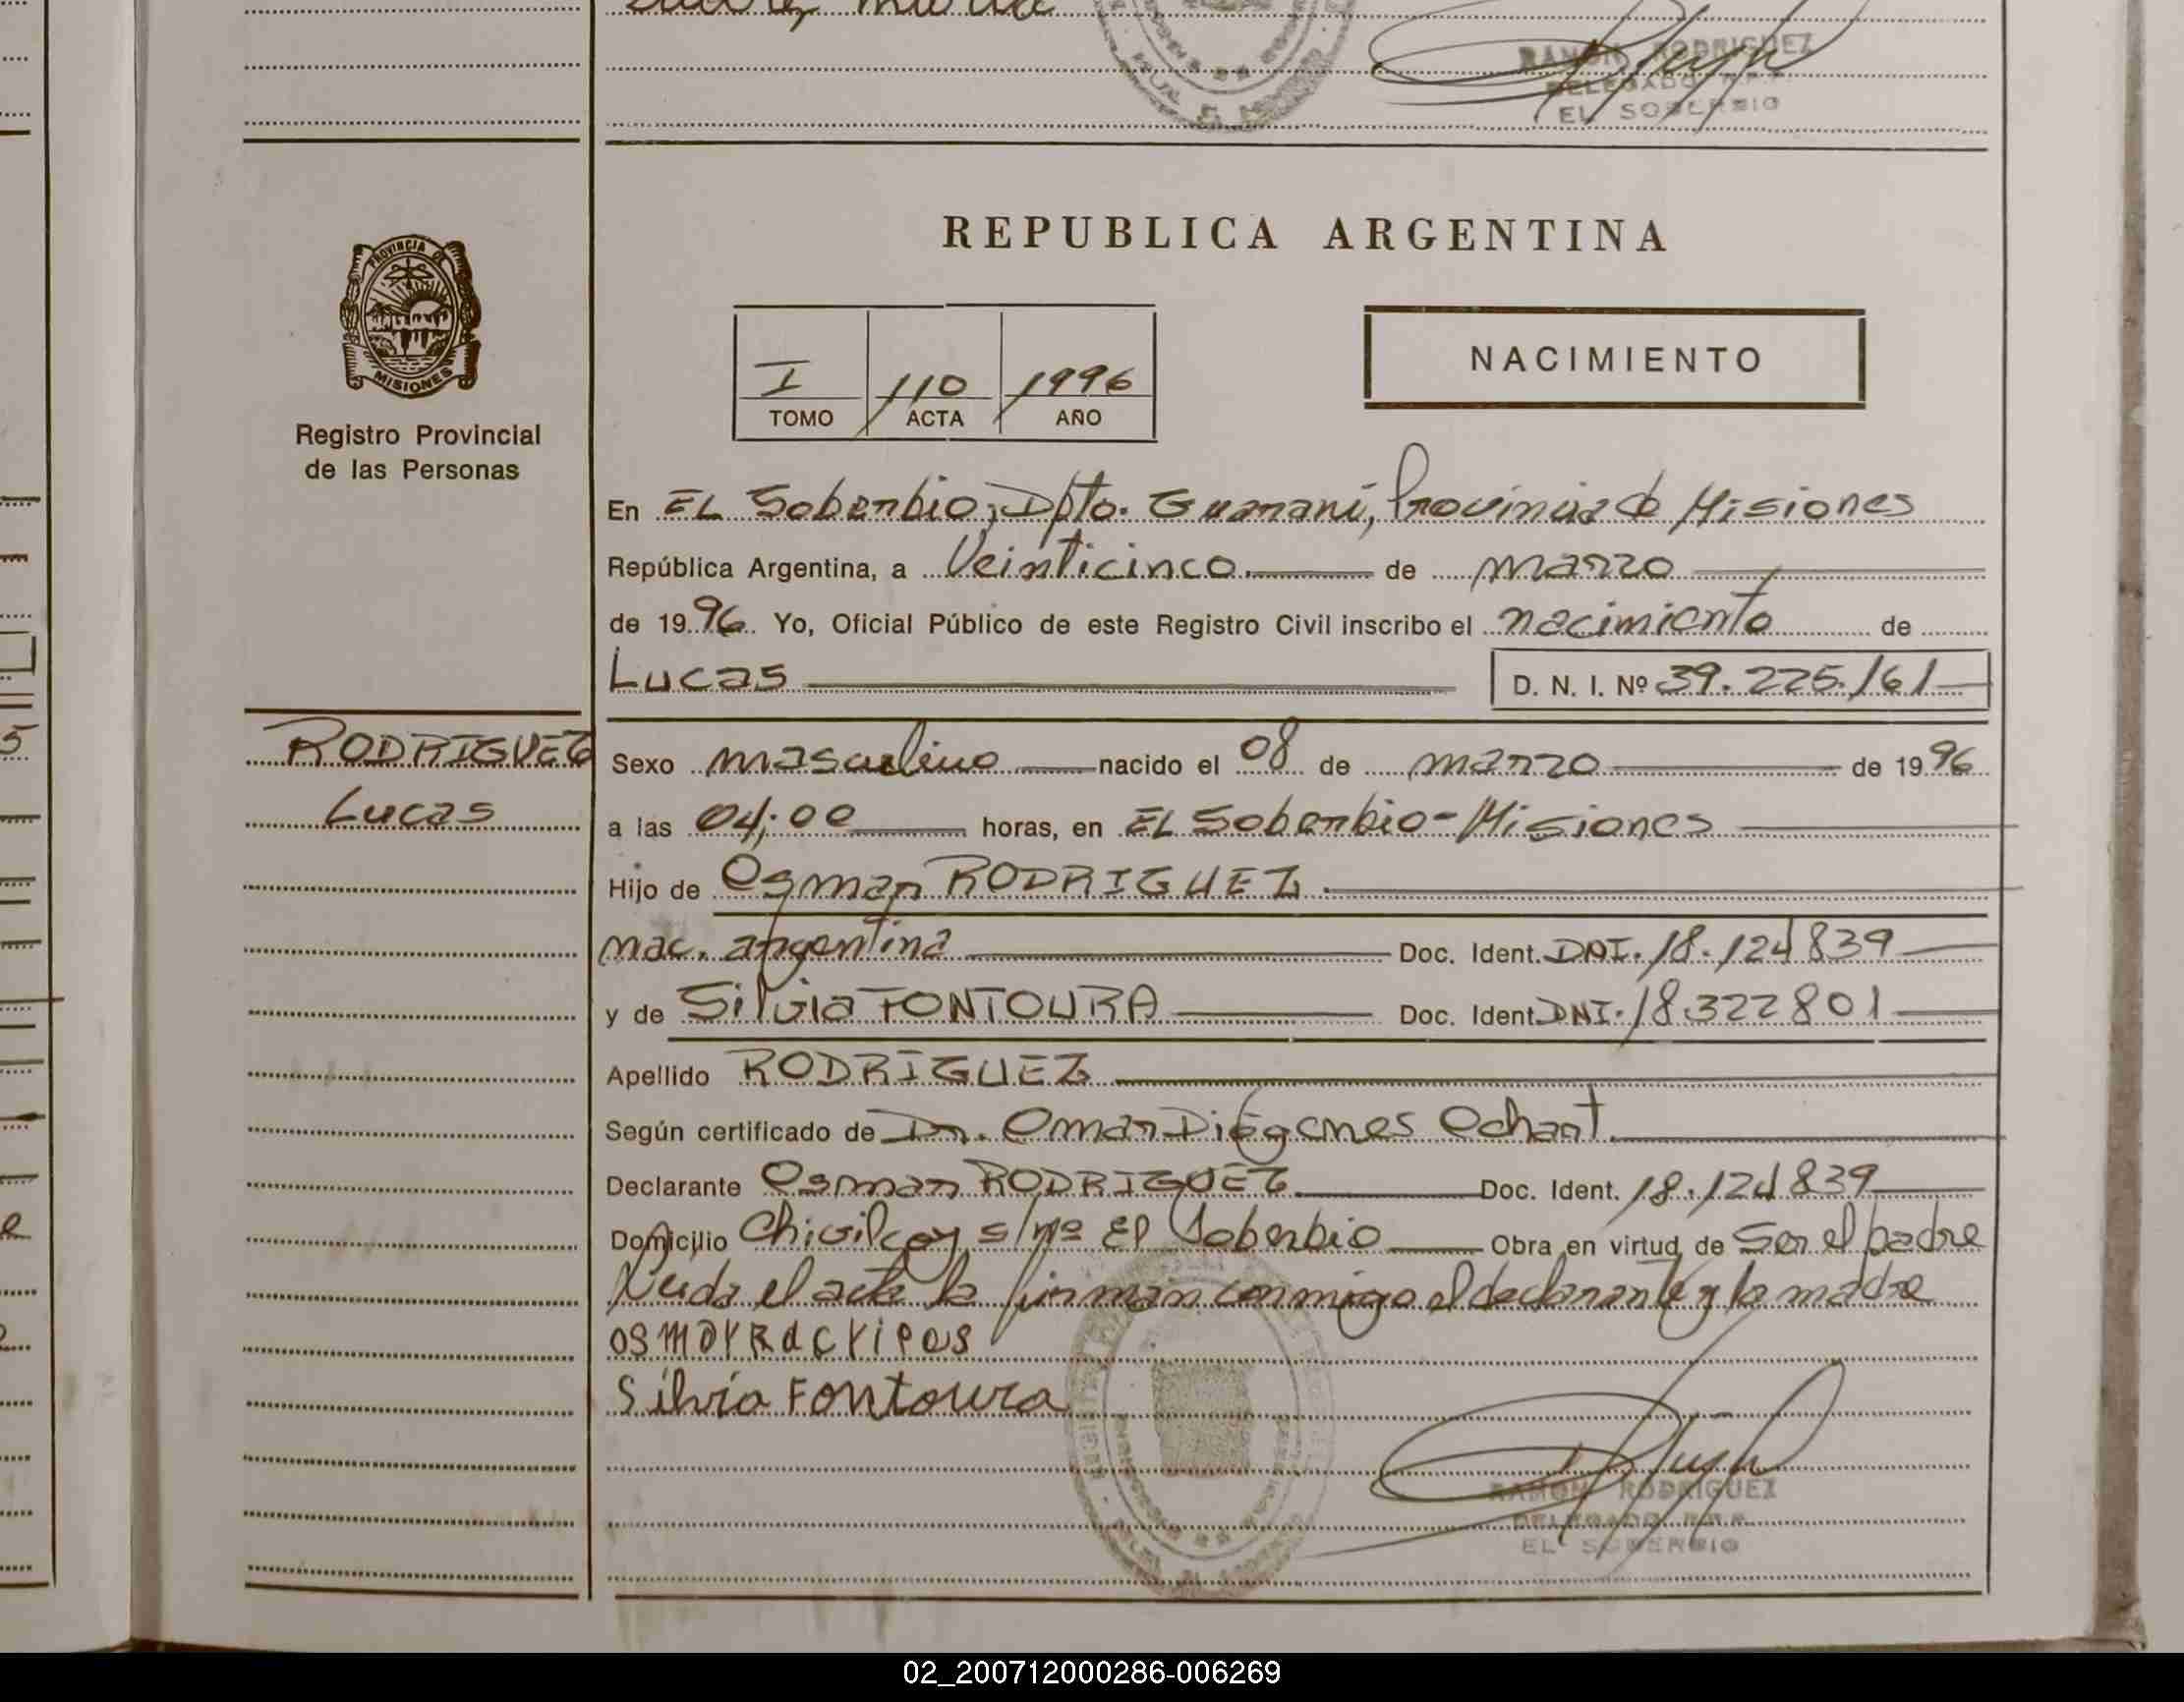 RAMON RODRIGUEZ
DELEGADO
EL SOBERBIO
REPUBLICA ARGENTINA
PROVINCIA DE
MISIONES
Registro Provincial
de las Personas
I 110 1996
TOMO ACTA AÑO
NACIMIENTO
En EL Soberbio, Dpto. Guaraní, Provincia de Misiones
República Argentina, a Veinticinco. de marzo
de 1996. Yo, Oficial Público de este Registro Civil inscribo el nacimiento de
Lucas D. N. I. Nº 39.225.161
RODRIGUEZ
Lucas
Sexo masculino nacido el 08 de marzo de 1996
a las 04:00 horas, en EL Soberbio - Misiones
Hijo de Osmar RODRIGUEZ.
nac. argentina Doc. Ident. DNI. 18.124839
y de Silvia FONTOURA Doc. Ident. DNI. 18.322801
Apellido RODRIGUEZ
Según certificado de Dr. Omar Diógenes Ochant.
Declarante Osmar RODRIGUEZ Doc. Ident. 18.124839
Domicilio Chivilcoy s/nº El Soberbio Obra en virtud de Ser el padre
Leida el acta la firman conmigo el declarante y la madre
Silvia Fontoura
RAMON RODRIGUEZ
DELEGADO R.P.P.
EL SOBERBIO
02_200712000286-006269